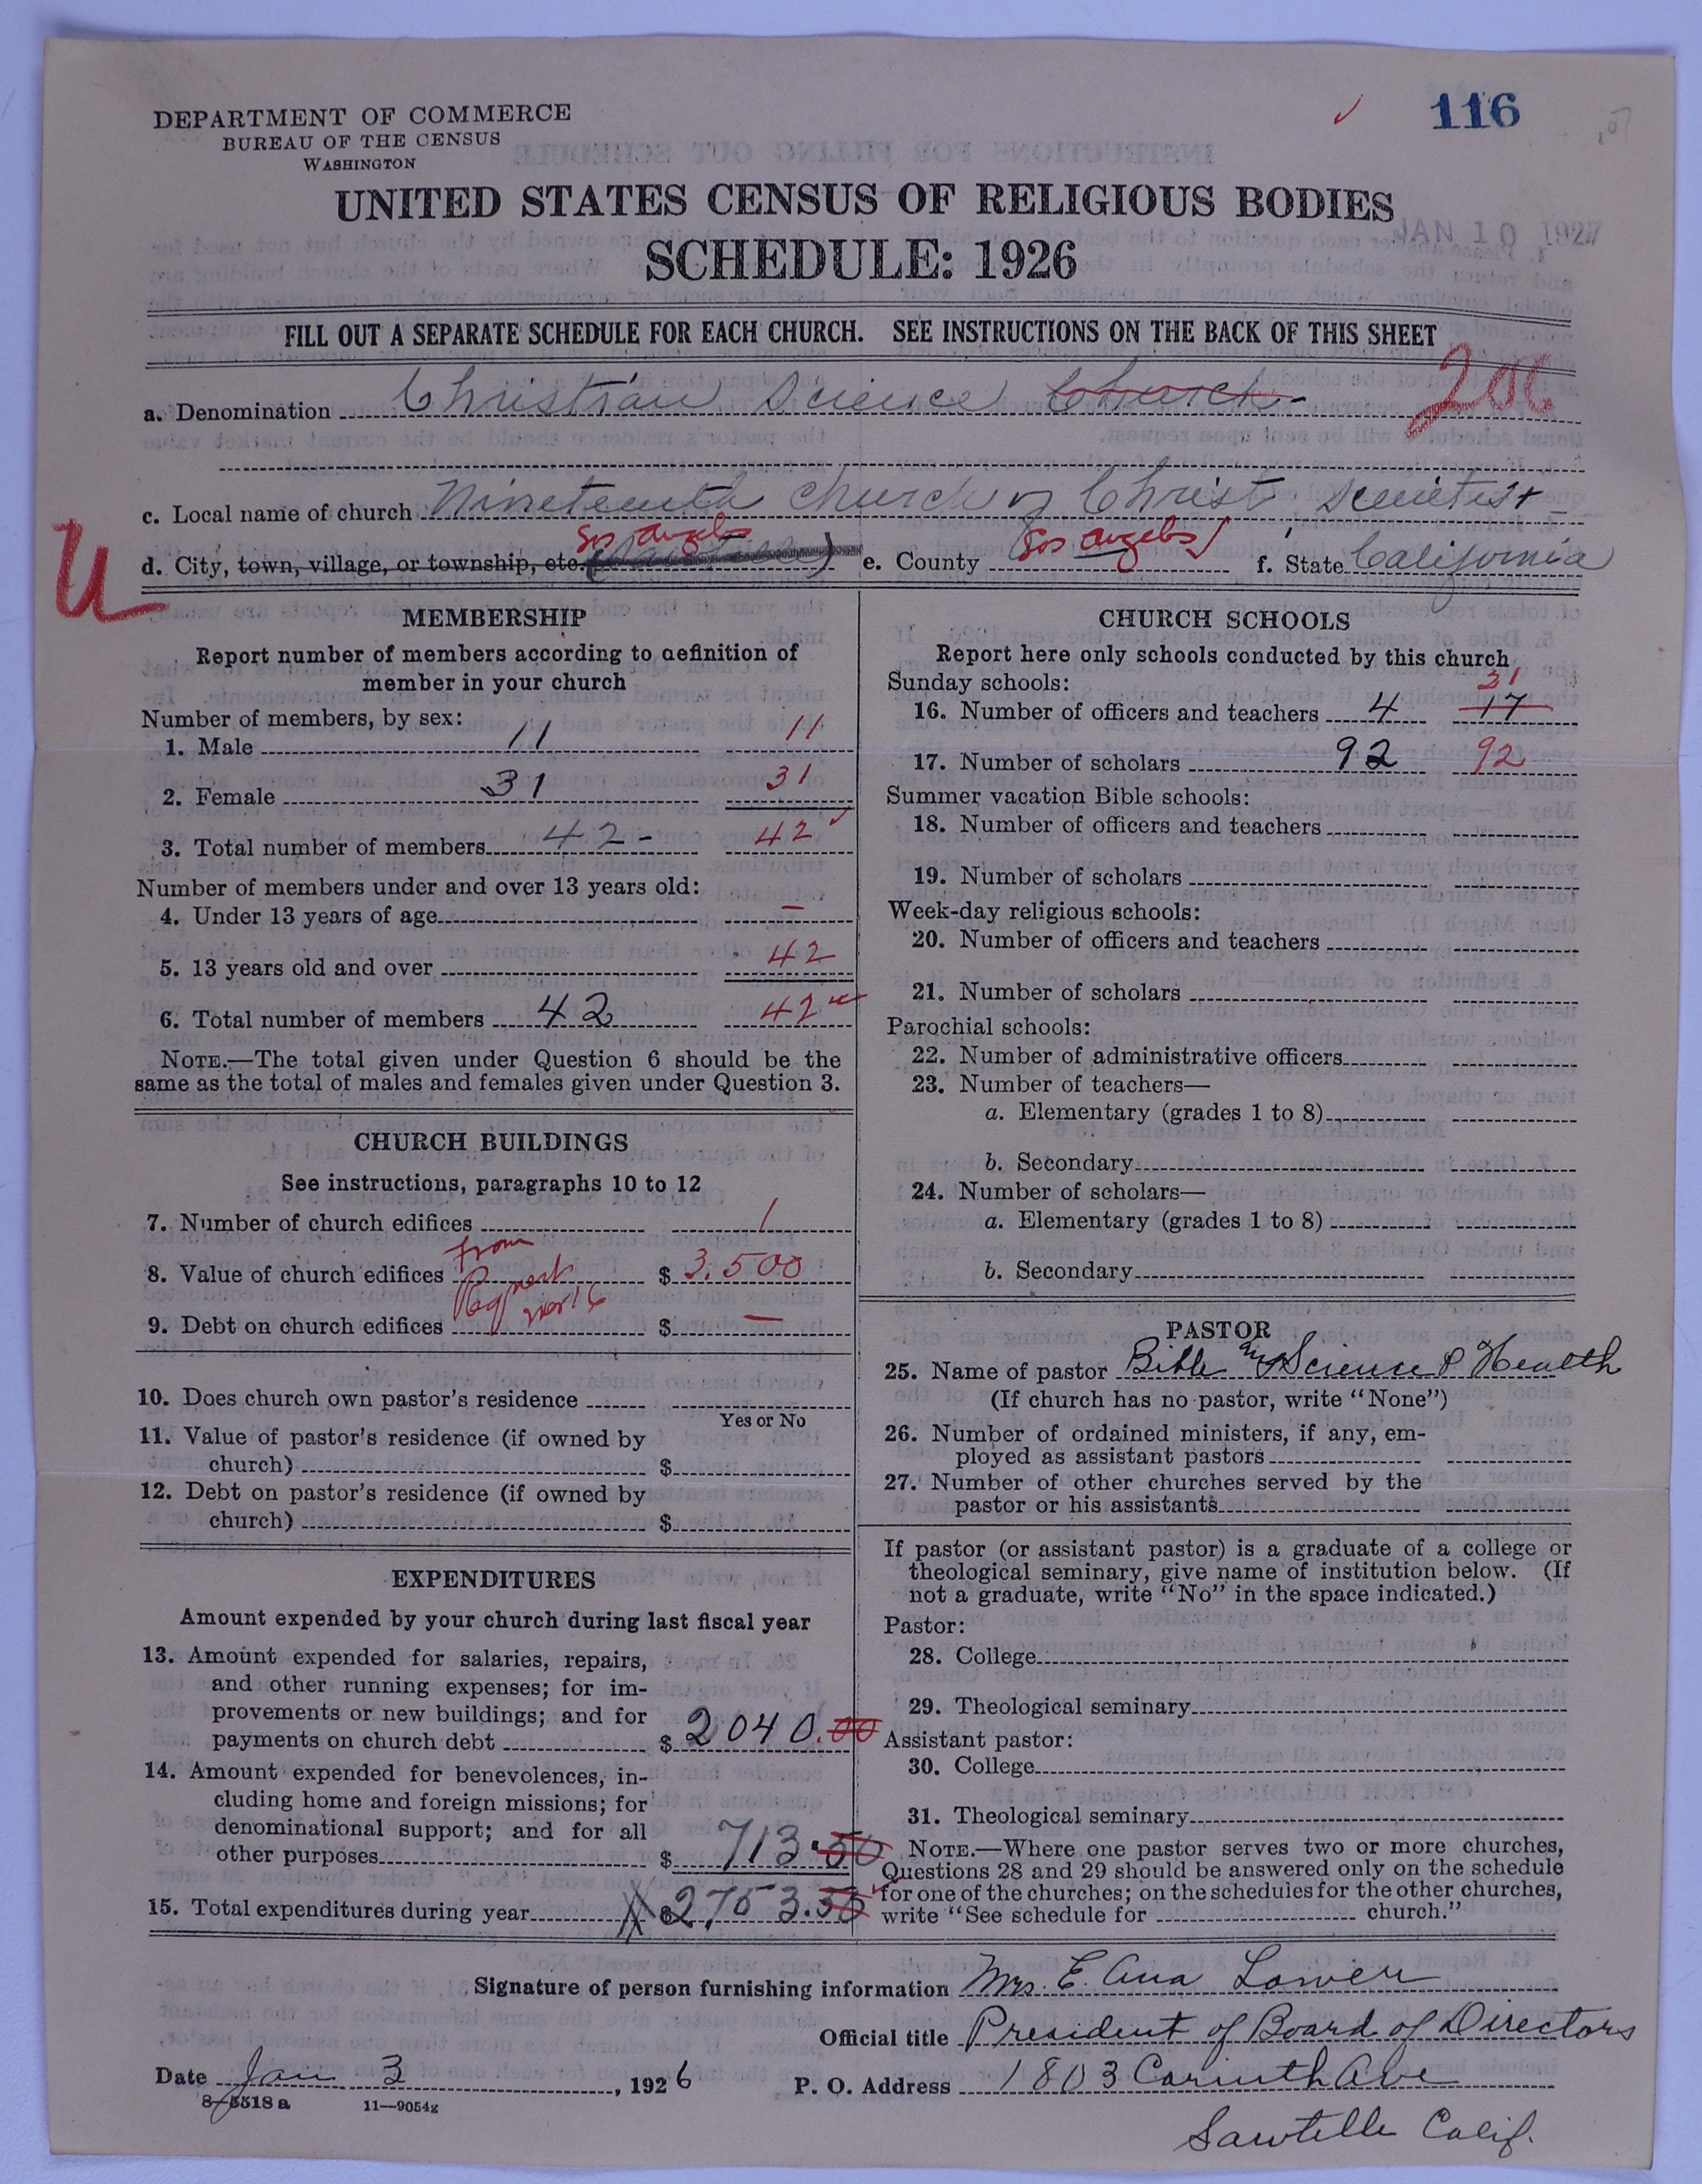 DEPARTMENT OF COMMERCE
BUREAU OF THE CENSUS
WASHINGTON
116
UNITED STATES CENSUS OF RELIGIOUS BODIES
SCHEDULE: 1926
JAN 10 1927
FILL OUT A SEPARATE SCHEDULE FOR EACH CHURCH. SEE INSTRUCTIONS ON THE BACK OF THIS SHEET
a. Denomination Christian Science Church
c. Local name of church Nineteenth Church of Christ, Scientist
Los Angeles Los Angeles
d. City, town, village, or township, etc. e. County f. State California
U
MEMBERSHIP
Report number of members according to definition of
member in your church
Number of members, by sex:
1. Male 11 11
2. Female 31 31
3. Total number of members 42 - 42
Number of members under and over 13 years old:
4. Under 13 years of age –
5. 13 years old and over 42
6. Total number of members 42 42
NOTE.—The total given under Question 6 should be the
same as the total of males and females given under Question 3.
CHURCH BUILDINGS
See instructions, paragraphs 10 to 12
7. Number of church edifices 1
from
8. Value of church edifices $ 3,500
9. Debt on church edifices $ —
10. Does church own pastor's residence
Yes or No
11. Value of pastor's residence (if owned by
church) $
12. Debt on pastor's residence (if owned by
church) $
EXPENDITURES
Amount expended by your church during last fiscal year
13. Amount expended for salaries, repairs,
and other running expenses; for im-
provements or new buildings; and for
payments on church debt $ 2040.00
14. Amount expended for benevolences, in-
cluding home and foreign missions; for
denominational support; and for all
other purposes $ 713.50
15. Total expenditures during year $2753.50
CHURCH SCHOOLS
Report here only schools conducted by this church
Sunday schools: 31
16. Number of officers and teachers 4 17
17. Number of scholars 92 92
Summer vacation Bible schools:
18. Number of officers and teachers
19. Number of scholars
Week-day religious schools:
20. Number of officers and teachers
21. Number of scholars
Parochial schools:
22. Number of administrative officers
23. Number of teachers—
a. Elementary (grades 1 to 8)
b. Secondary
24. Number of scholars—
a. Elementary (grades 1 to 8)
b. Secondary
PASTOR
25. Name of pastor Bible and Science & Health
(If church has no pastor, write "None")
26. Number of ordained ministers, if any, em-
ployed as assistant pastors
27. Number of other churches served by the
pastor or his assistants
If pastor (or assistant pastor) is a graduate of a college or
theological seminary, give name of institution below. (If
not a graduate, write "No" in the space indicated.)
Pastor:
28. College
29. Theological seminary
Assistant pastor:
30. College
31. Theological seminary
NOTE.—Where one pastor serves two or more churches,
Questions 28 and 29 should be answered only on the schedule
for one of the churches; on the schedules for the other churches,
write "See schedule for church."
Signature of person furnishing information Mrs. E. Ana Lower
Official title President of Board of Directors
Date Jan 3, 1926 P. O. Address 1803 Corinth Ave
8-5518a 11—9054z
Sawtelle Calif.